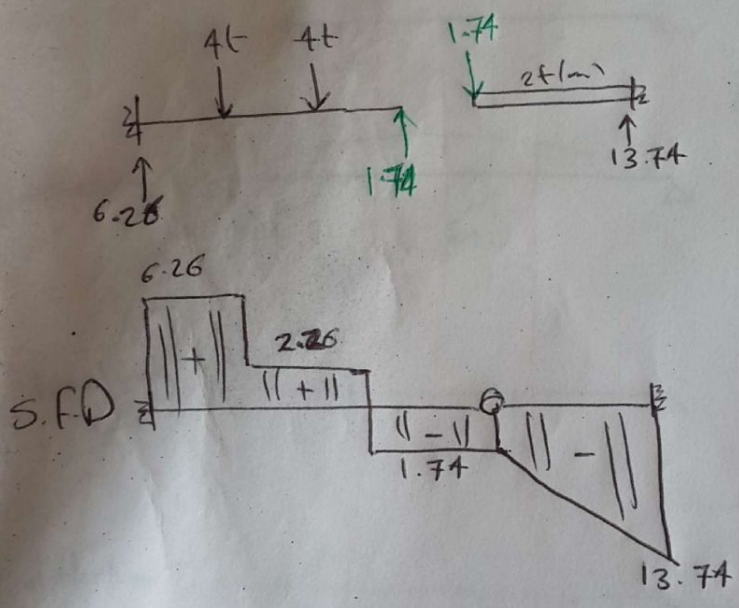 4t 4t 1.74
2t/(m)
6.26 1.74 13.74
6.26
2.26
S.F.D + + - -
1.74
13.74